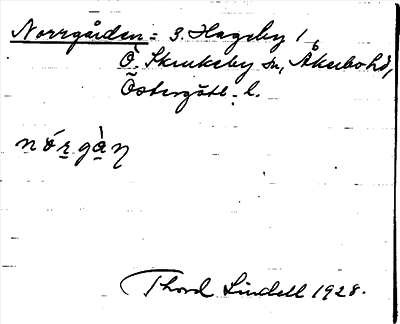 Norrgården = 3. Hageby 1
Ö. Skrukeby sn, Åkerbo hd,
Östergötl. l.
nórgàn
Thord Lindell 1928.